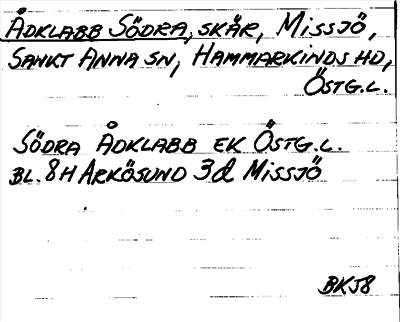 ÅDKLABB SÖDRA, SKÄR, MISSJÖ,
SANKT ANNA SN, HAMMARKINDS HD,
ÖSTG.L.
SÖDRA ÅDKLABB EK ÖSTG.L.
BL. 8H ARKÖSUND 3d MISSJÖ
BKJ8